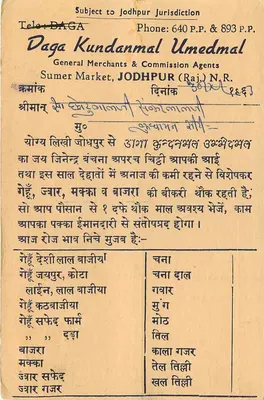 Subject to Jodhpur Jurisdiction
Tele : DAGA Phone: 640 P.P. & 893 P.P.
Daga Kundanmal Umedmal
General Merchants & Commission Agents
Sumer Market, JODHPUR (Raj.) N.R.
क्रमांक दिनांक १९६३
श्रीमान्
मु०
योग्य लिखी जोधपुर से डागा कुन्दनमल उम्मेदमल
का जय जिनेन्द्र बंचना अपरंच चिट्ठी आपकी आई
तथा इस साल देहातों में अनाज की कमी रहने से विशेषकर
गेहूँ, ज्वार, मक्का व बाजरा की बीकरी थौक रहती है;
सो आप पौसान से १ दफे थौक माल अवश्य भेजें, काम
आपका पक्का ईमानदारी से संतोषप्रद होगा।
आज रोज भाव निचे मुजब है:—
गेहूँ देशी लाल बाजीया
गेहूँ जयपुर, कोटा
लाईन, लाल बाजीया
गेहूँ कठबाजीया
गेहूँ सफेद फार्म
" " दड़ा
बाजरा
मक्का
ज्वार सफेद
ज्वार गजर
चना
चना दाल
गवार
मुंग
मोठ
तिल
काला गजर
तेल तिल्ली
खल तिल्ली